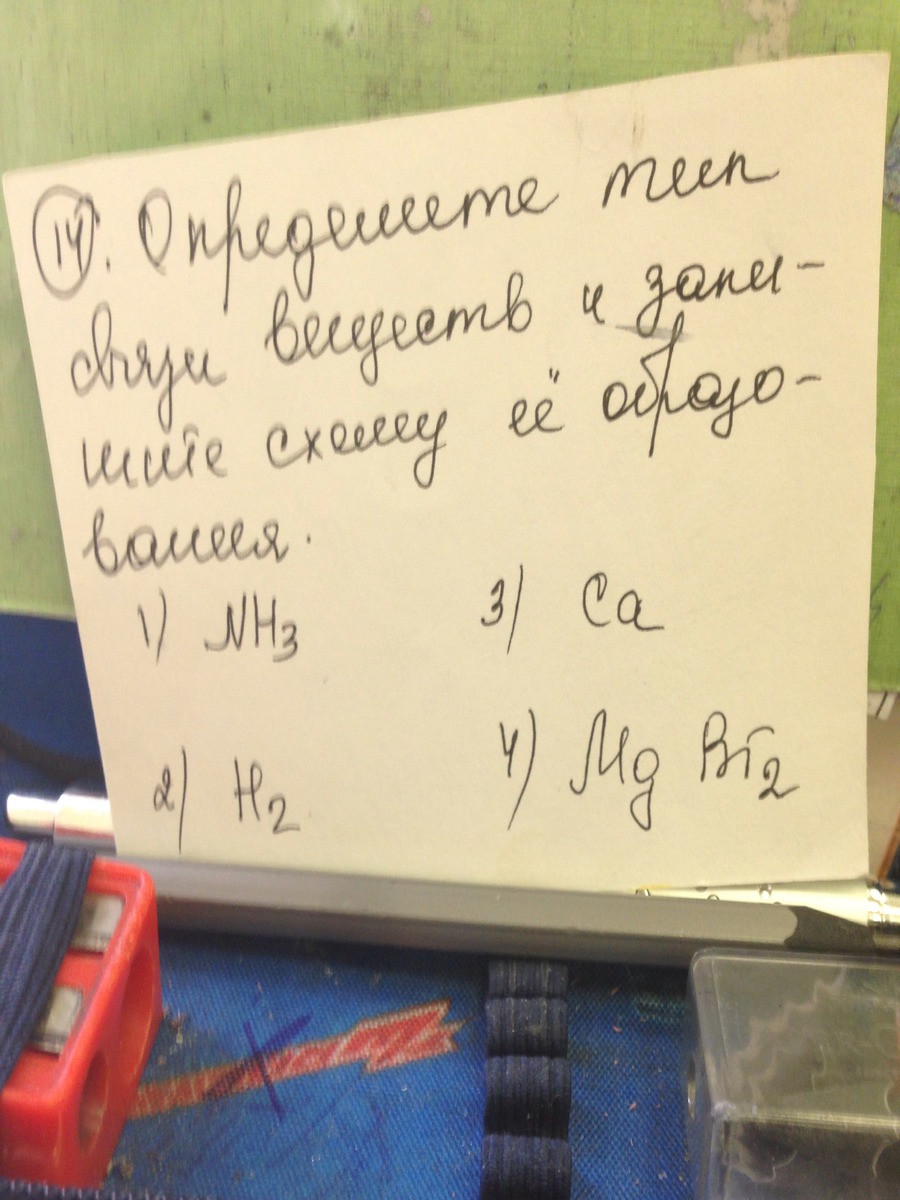 14. Определите тип
связи веществ и запи-
шите схему её образо-
вания.
1) NH3
3) Ca
2) H2
4) Mg Br2